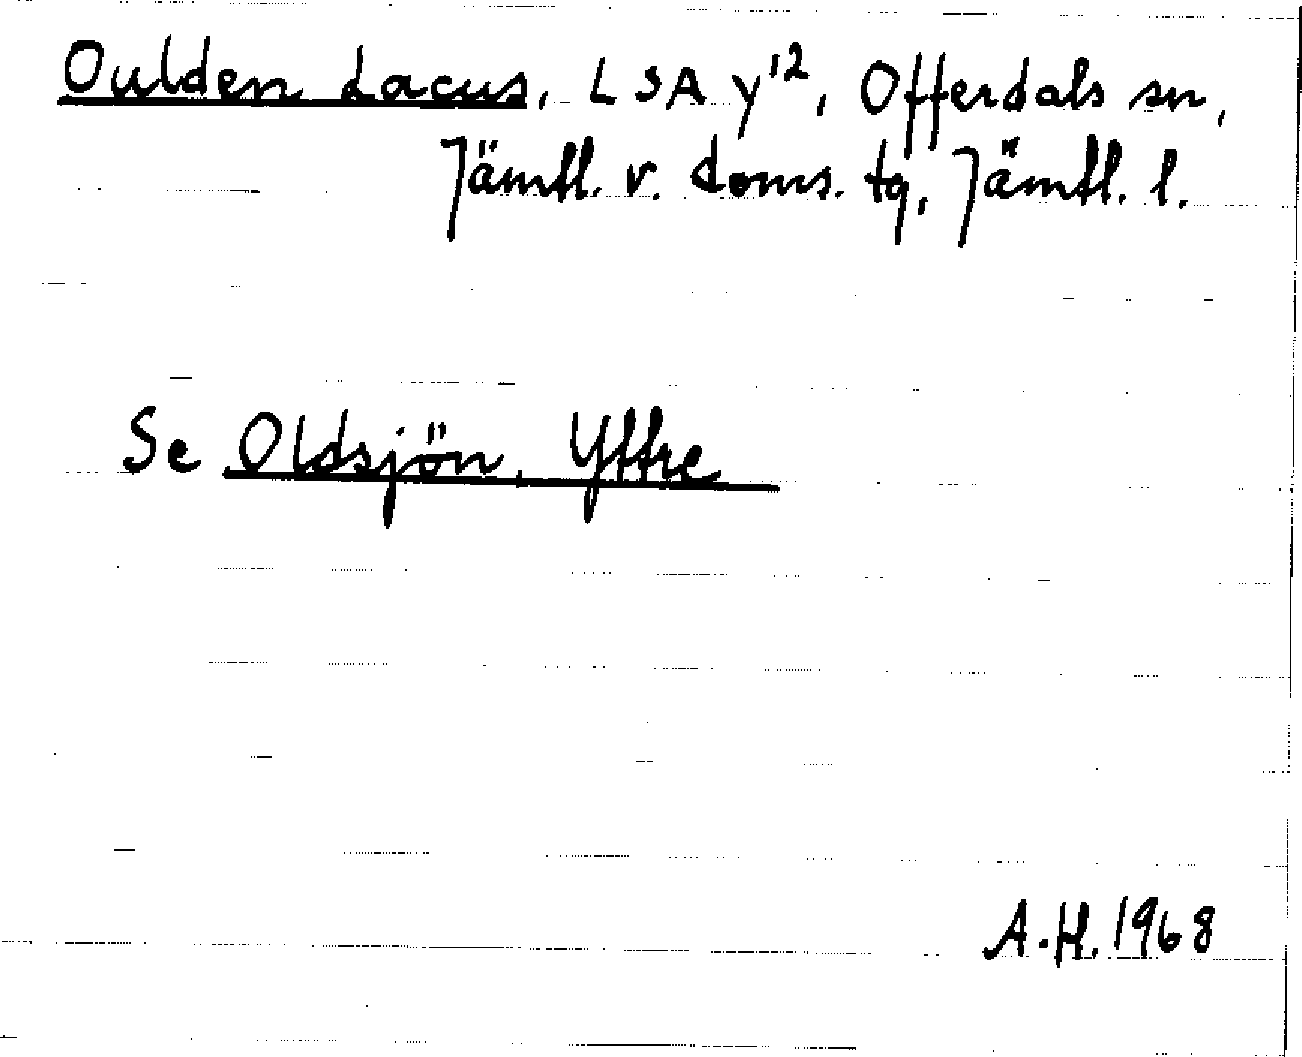 Oulden Lacus, LSA y'2, Offerdals sn,
Jämtl. v. doms. tg, Jämtl. l.
Se Oldsjön, Yttre
A.H. 1968